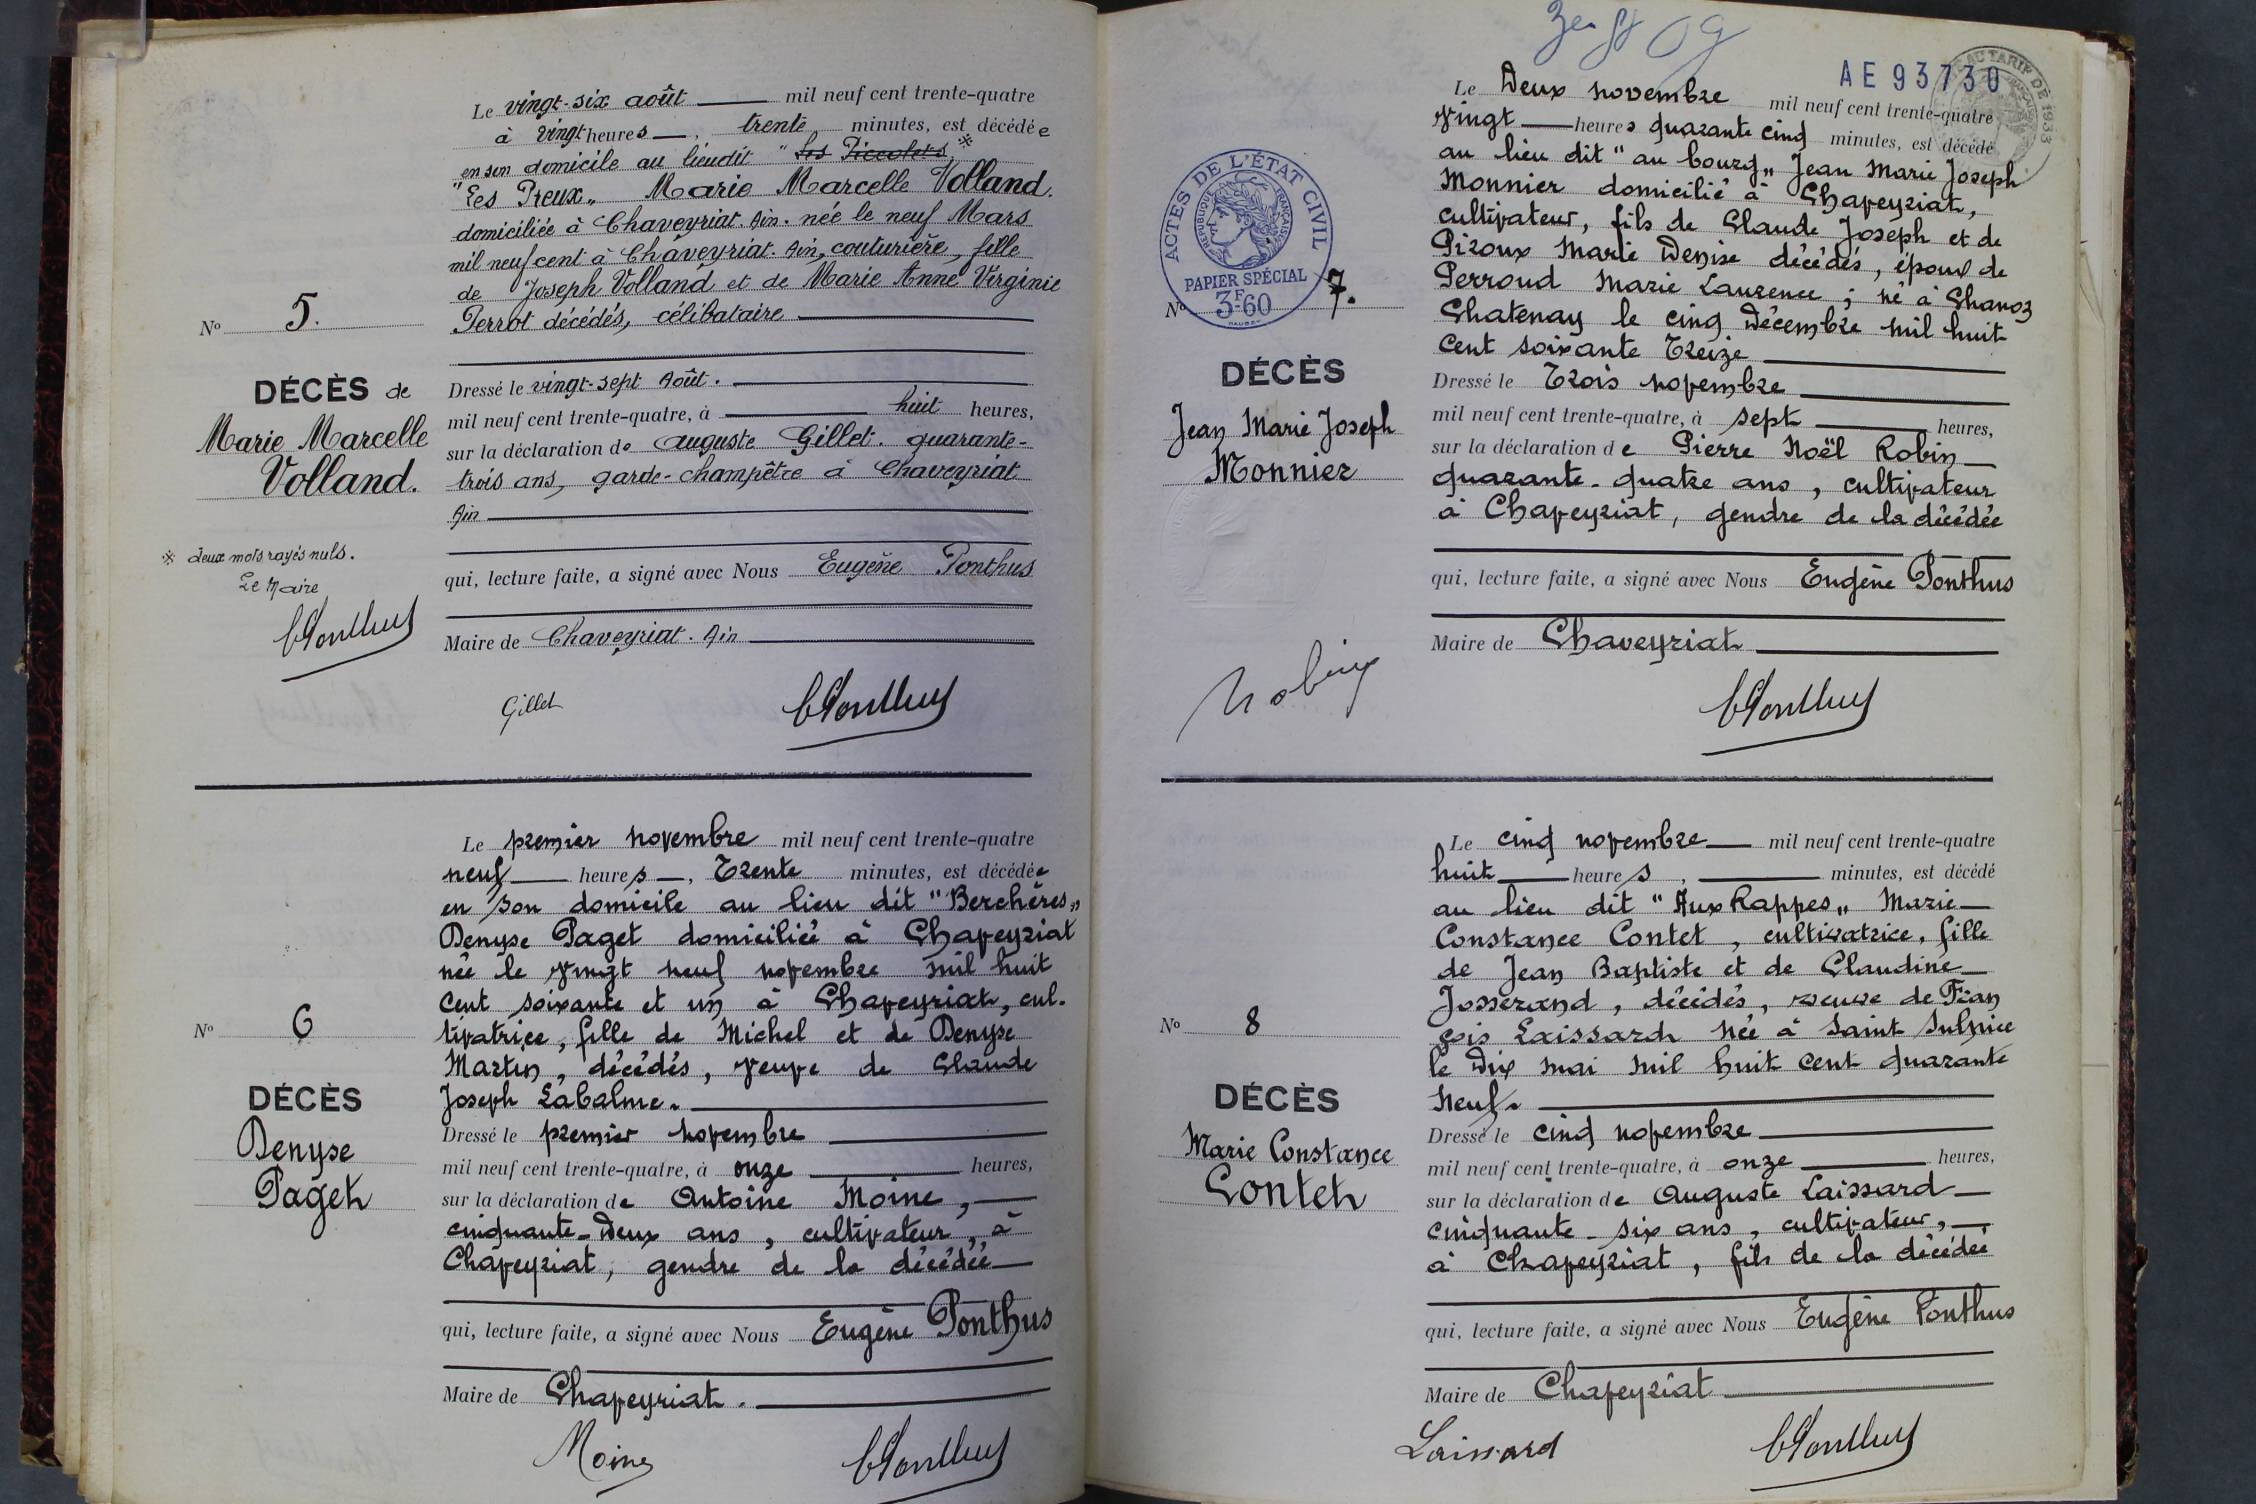 Le vingt-six août mil neuf cent trente-quatre
à vingt heures, trente minutes, est décédée
en son domicile au lieudit "Les Piccolets ※
"Les Preux„ Marie Marcelle Volland.
domiciliée à Chaveyriat. Ain. née le neuf Mars
mil neuf cent à Chaveyriat. Ain, couturière, fille
de Joseph Volland et de Marie Anne Virginie
Perrot décédés, célibataire
No 5.
DÉCÈS de
Marie Marcelle
Volland.
※ deux mots rayés nuls.
Le Maire
EPonthus
Dressé le vingt-sept Août.
mil neuf cent trente-quatre, à huit heures,
sur la déclaration de Auguste Gillet. quarante-
trois ans, garde-champêtre à Chaveyriat
Ain
qui, lecture faite, a signé avec Nous Eugène Ponthus
Maire de Chaveyriat. Ain
Gillet EPonthus
Le premier novembre mil neuf cent trente-quatre
neuf heures, Trente minutes, est décédée
en son domicile au lieu dit "Berchères„
Denyse Paget domiciliée à Chaveyriat
née le vingt neuf novembre mil huit
cent soixante et un à Chaveyriat, cul-
tivatrice, fille de Michel et de Denyse
Martin, décédés, veuve de Claude
Joseph Labalme.
No 6
DÉCÈS
Denyse
Paget
Dressé le premier novembre
mil neuf cent trente-quatre, à onze heures,
sur la déclaration de Antoine Moine,
cinquante-Deux ans, cultivateur, à
Chaveyriat, gendre de la décédée
qui, lecture faite, a signé avec Nous Eugène Ponthus
Maire de Chaveyriat.
Moine EPonthus
AE 93730
AU TARIF DE 1933
Le Deux novembre mil neuf cent trente-quatre
vingt heures quarante cinq minutes, est décédé
au lieu dit "au bourg„ Jean Marie Joseph
Monnier domicilié à Chaveyriat,
cultivateur, fils de Claude Joseph et de
Piroux Marie Denise décédés, époux de
Perroud Marie Laurence ; né à Chanoz
Chatenay le cinq Décembre mil huit
cent soixante Treize
ACTES DE L'ÉTAT CIVIL
RÉPUBLIQUE FRANÇAISE
PAPIER SPÉCIAL
3F-60
No 7.
DÉCÈS
Jean Marie Joseph
Monnier
Dressé le Trois novembre
mil neuf cent trente-quatre, à sept heures,
sur la déclaration de Pierre Noël Robin
quarante-quatre ans, cultivateur
à Chaveyriat, gendre de la décédée
qui, lecture faite, a signé avec Nous Eugène Ponthus
Maire de Chaveyriat
Robin EPonthus
Le cinq novembre mil neuf cent trente-quatre
huit heures, minutes, est décédé
au lieu dit "Aux Rappes„ Marie
Constance Contet, cultivatrice, fille
de Jean Baptiste et de Claudine
Josserand, décédés, veuve de Fran
çois Laissard née à Saint Sulpice
le Dix mai mil huit cent quarante
neuf.
No 8
DÉCÈS
Marie Constance
Contet
Dressé le cinq novembre
mil neuf cent trente-quatre, à onze heures,
sur la déclaration de Auguste Laissard
cinquante-six ans, cultivateur,
à Chaveyriat, fils de la décédée
qui, lecture faite, a signé avec Nous Eugène Ponthus
Maire de Chaveyriat
Laissard EPonthus